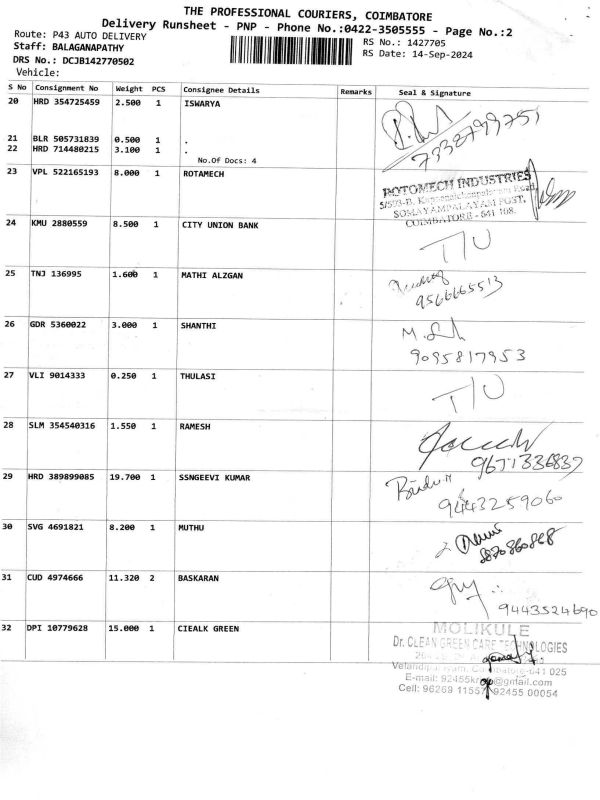 THE PROFESSIONAL COURIERS, COIMBATORE
Delivery Runsheet - PNP - Phone No.:0422-3505555 - Page No.:2
Route: P43 AUTO DELIVERY
RS No.: 1427705
Staff: BALAGANAPATHY
RS Date: 14-Sep-2024
DRS No.: DCJB142770502
Vehicle:
S No Consignment No Weight PCS Consignee Details Remarks Seal & Signature
20 HRD 354725459 2.500 1 ISWARYA
21 BLR 505731839 0.500 1 .
22 HRD 714480215 3.100 1 .
No.Of Docs: 4
23 VPL 522165193 8.000 1 ROTAMECH
ROTOMECH INDUSTRIES
SOMAYAMPALAYAM POST,
COIMBATORE - 641 108.
24 KMU 2880559 8.500 1 CITY UNION BANK
T/U
25 TNJ 136995 1.600 1 MATHI ALZGAN
9566665513
26 GDR 5360022 3.000 1 SHANTHI
9095817953
27 VLI 9014333 0.250 1 THULASI
T/U
28 SLM 354540316 1.550 1 RAMESH
9671336837
29 HRD 389899085 19.700 1 SSNGEEVI KUMAR
9443259060
30 SVG 4691821 8.200 1 MUTHU
31 CUD 4974666 11.320 2 BASKARAN
9443524690
32 DPI 10779628 15.000 1 CIEALK GREEN
MOLIKULE
Dr. CLEAN GREEN CARE TECHNOLOGIES
641 025
Cell: 96269 11557, 92455 00054